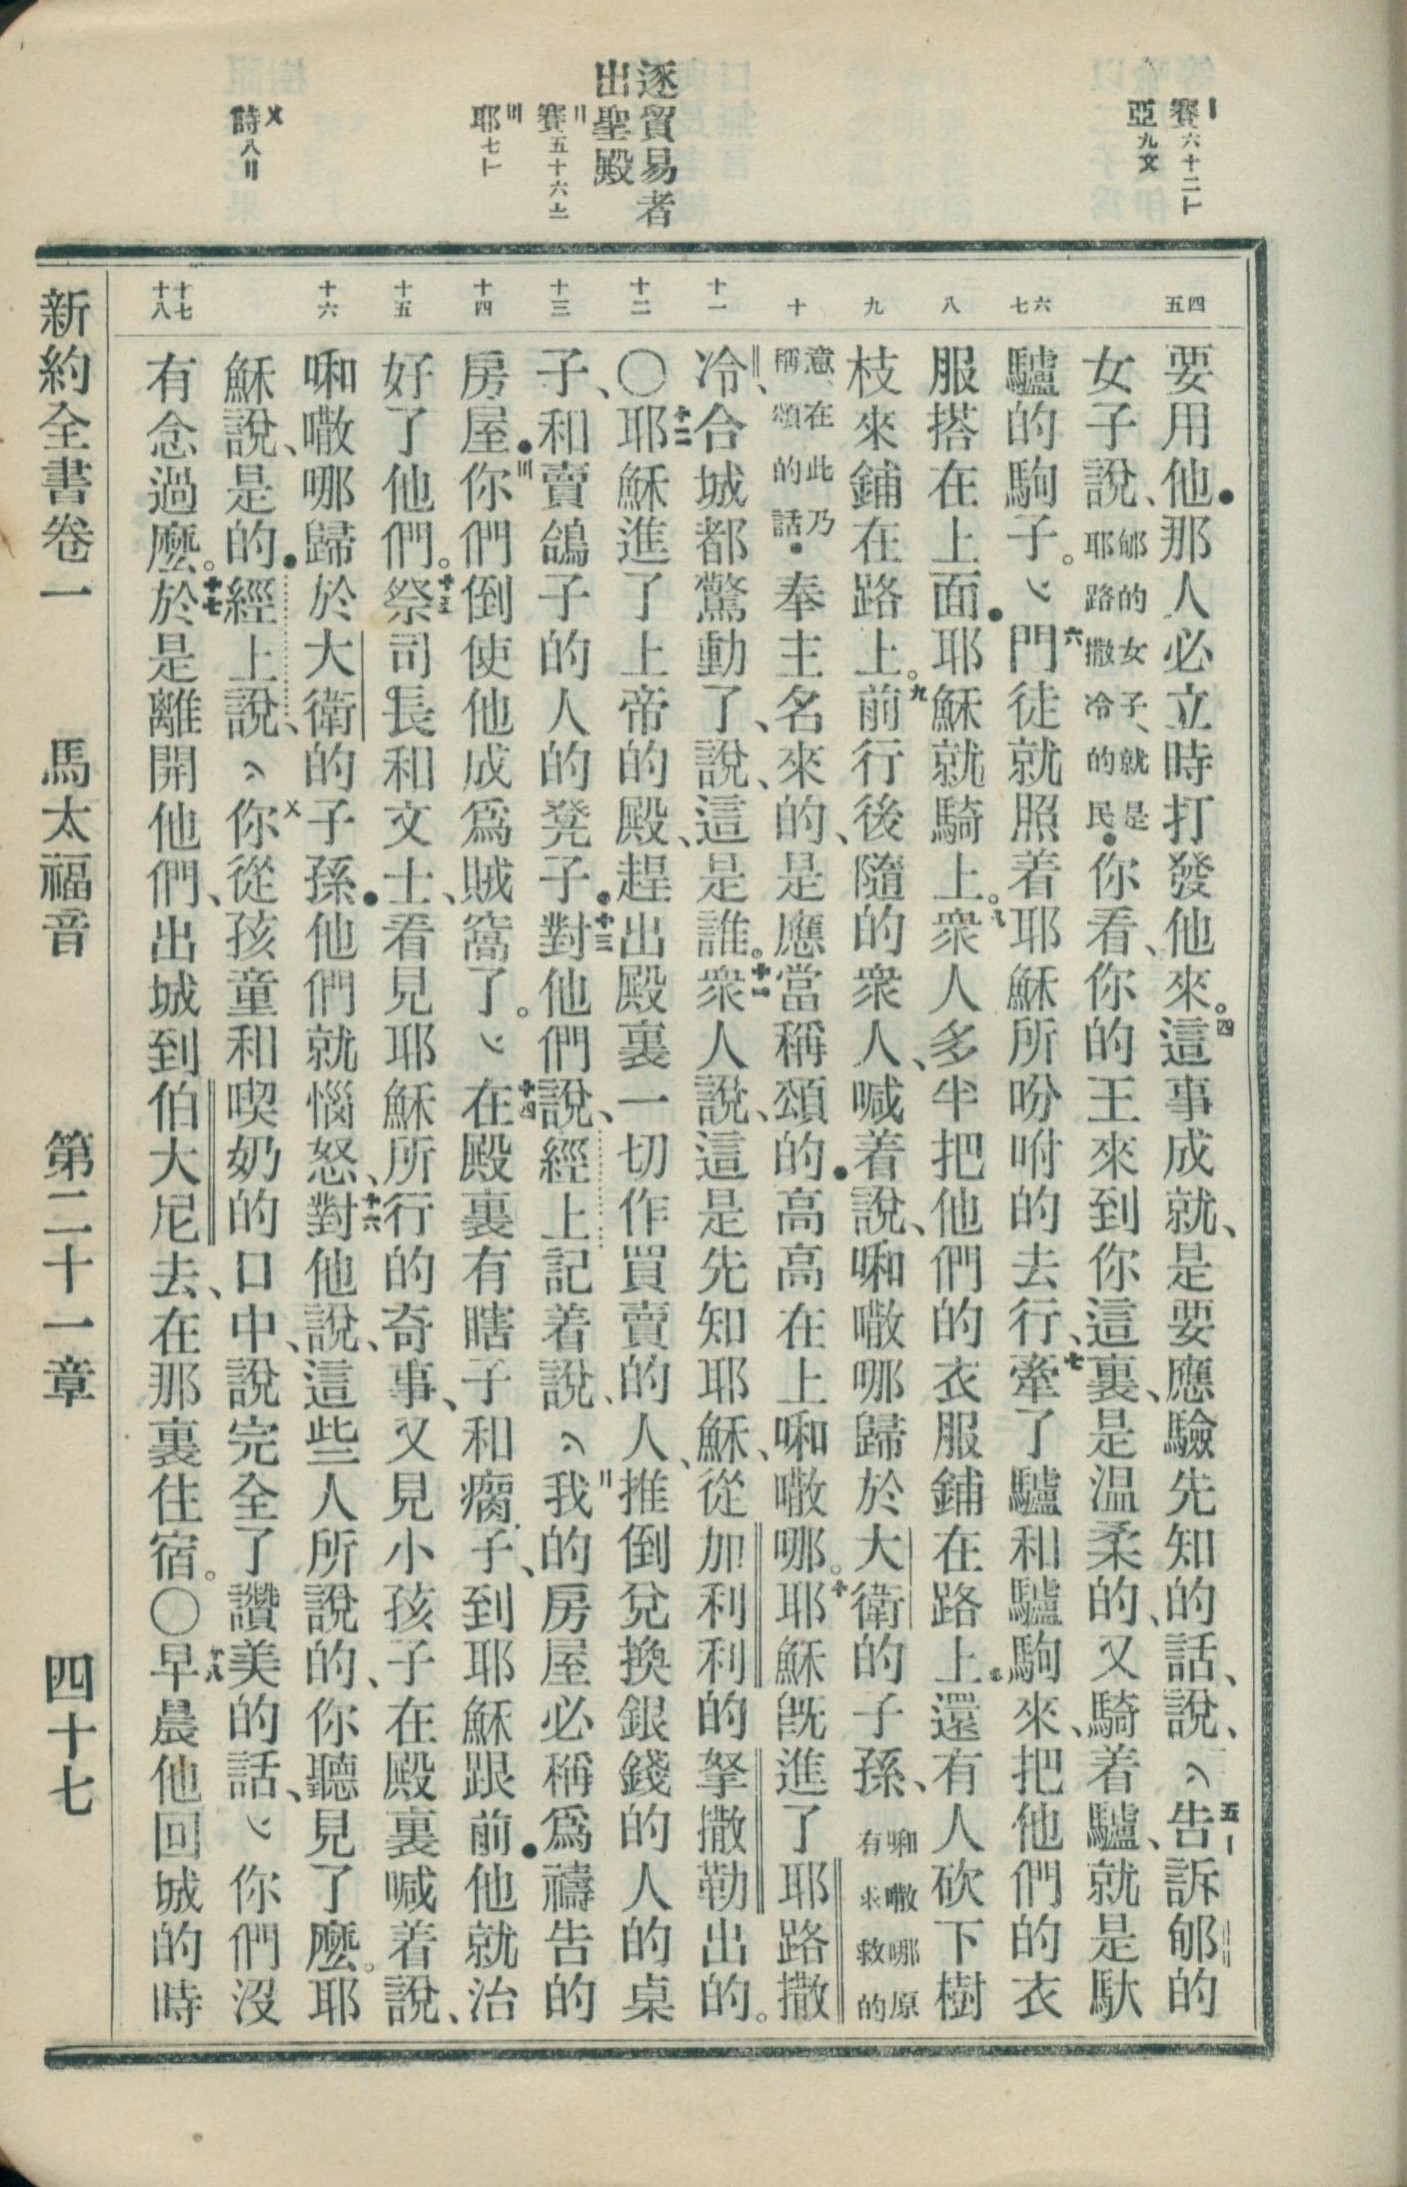 賽六十二〡〧
亞九文
逐貿易者
出聖殿
〢賽五十六〧
〣耶七〡〧
〤詩八〢
四
五
六
七
八
九
十
十一
十二
十三
十四
十五
十六
十七
十八
要用他●那人必立時打發他來。四這事成就、是要應驗先知的話、說、五〡告訴郇的
女子說、郇的女子、就是耶路撒冷的民●你看、你的王來到你這裏、是温柔的、又騎着驢、就是馱
驢的駒子。六門徒就照着耶穌所吩咐的去行、七牽了驢和驢駒來、把他們的衣
服搭在上面●耶穌就騎上。八衆人多半把他們的衣服鋪在路上●還有人砍下樹
枝來鋪在路上。九前行後隨的衆人、喊着說、啝囃哪歸於大衛的子孫、啝囃哪原有求救的
意、在此乃稱頌的話●奉主名來的、是應當稱頌的●高高在上啝囃哪。十耶穌旣進了耶路撒
冷、合城都驚動了、說、這是誰。十一衆人說、這是先知耶穌、從加利利的拏撒勒出的。
〇十二耶穌進了上帝的殿、趕出殿裏一切作買賣的人、推倒兌換銀錢的人的桌
子、和賣鴿子的人的凳子●十三對他們說、經上記着說、〢我的房屋必稱爲禱告的
房屋●〣你們倒使他成爲賊窩了。十四在殿裏有瞎子和瘸子、到耶穌跟前●他就治
好了他們。十五祭司長和文士、看見耶穌所行的奇事、又見小孩子在殿裏喊着說、
啝囃哪歸於大衛的子孫●他們就惱怒、十六對他說、這些人所說的、你聽見了麽。耶
穌說、是的●經上說、〤你從孩童和喫奶的口中、說完全了讚美的話、你們沒
有念過麽。十七於是離開他們、出城到伯大尼去、在那裏住宿。〇十八早晨他回城的時
新約全書卷一 馬太福音 第二十一章 四十七